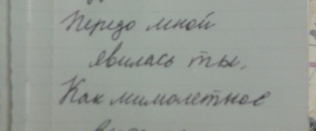 Передо мной
явилась ты,
Как мимолетное